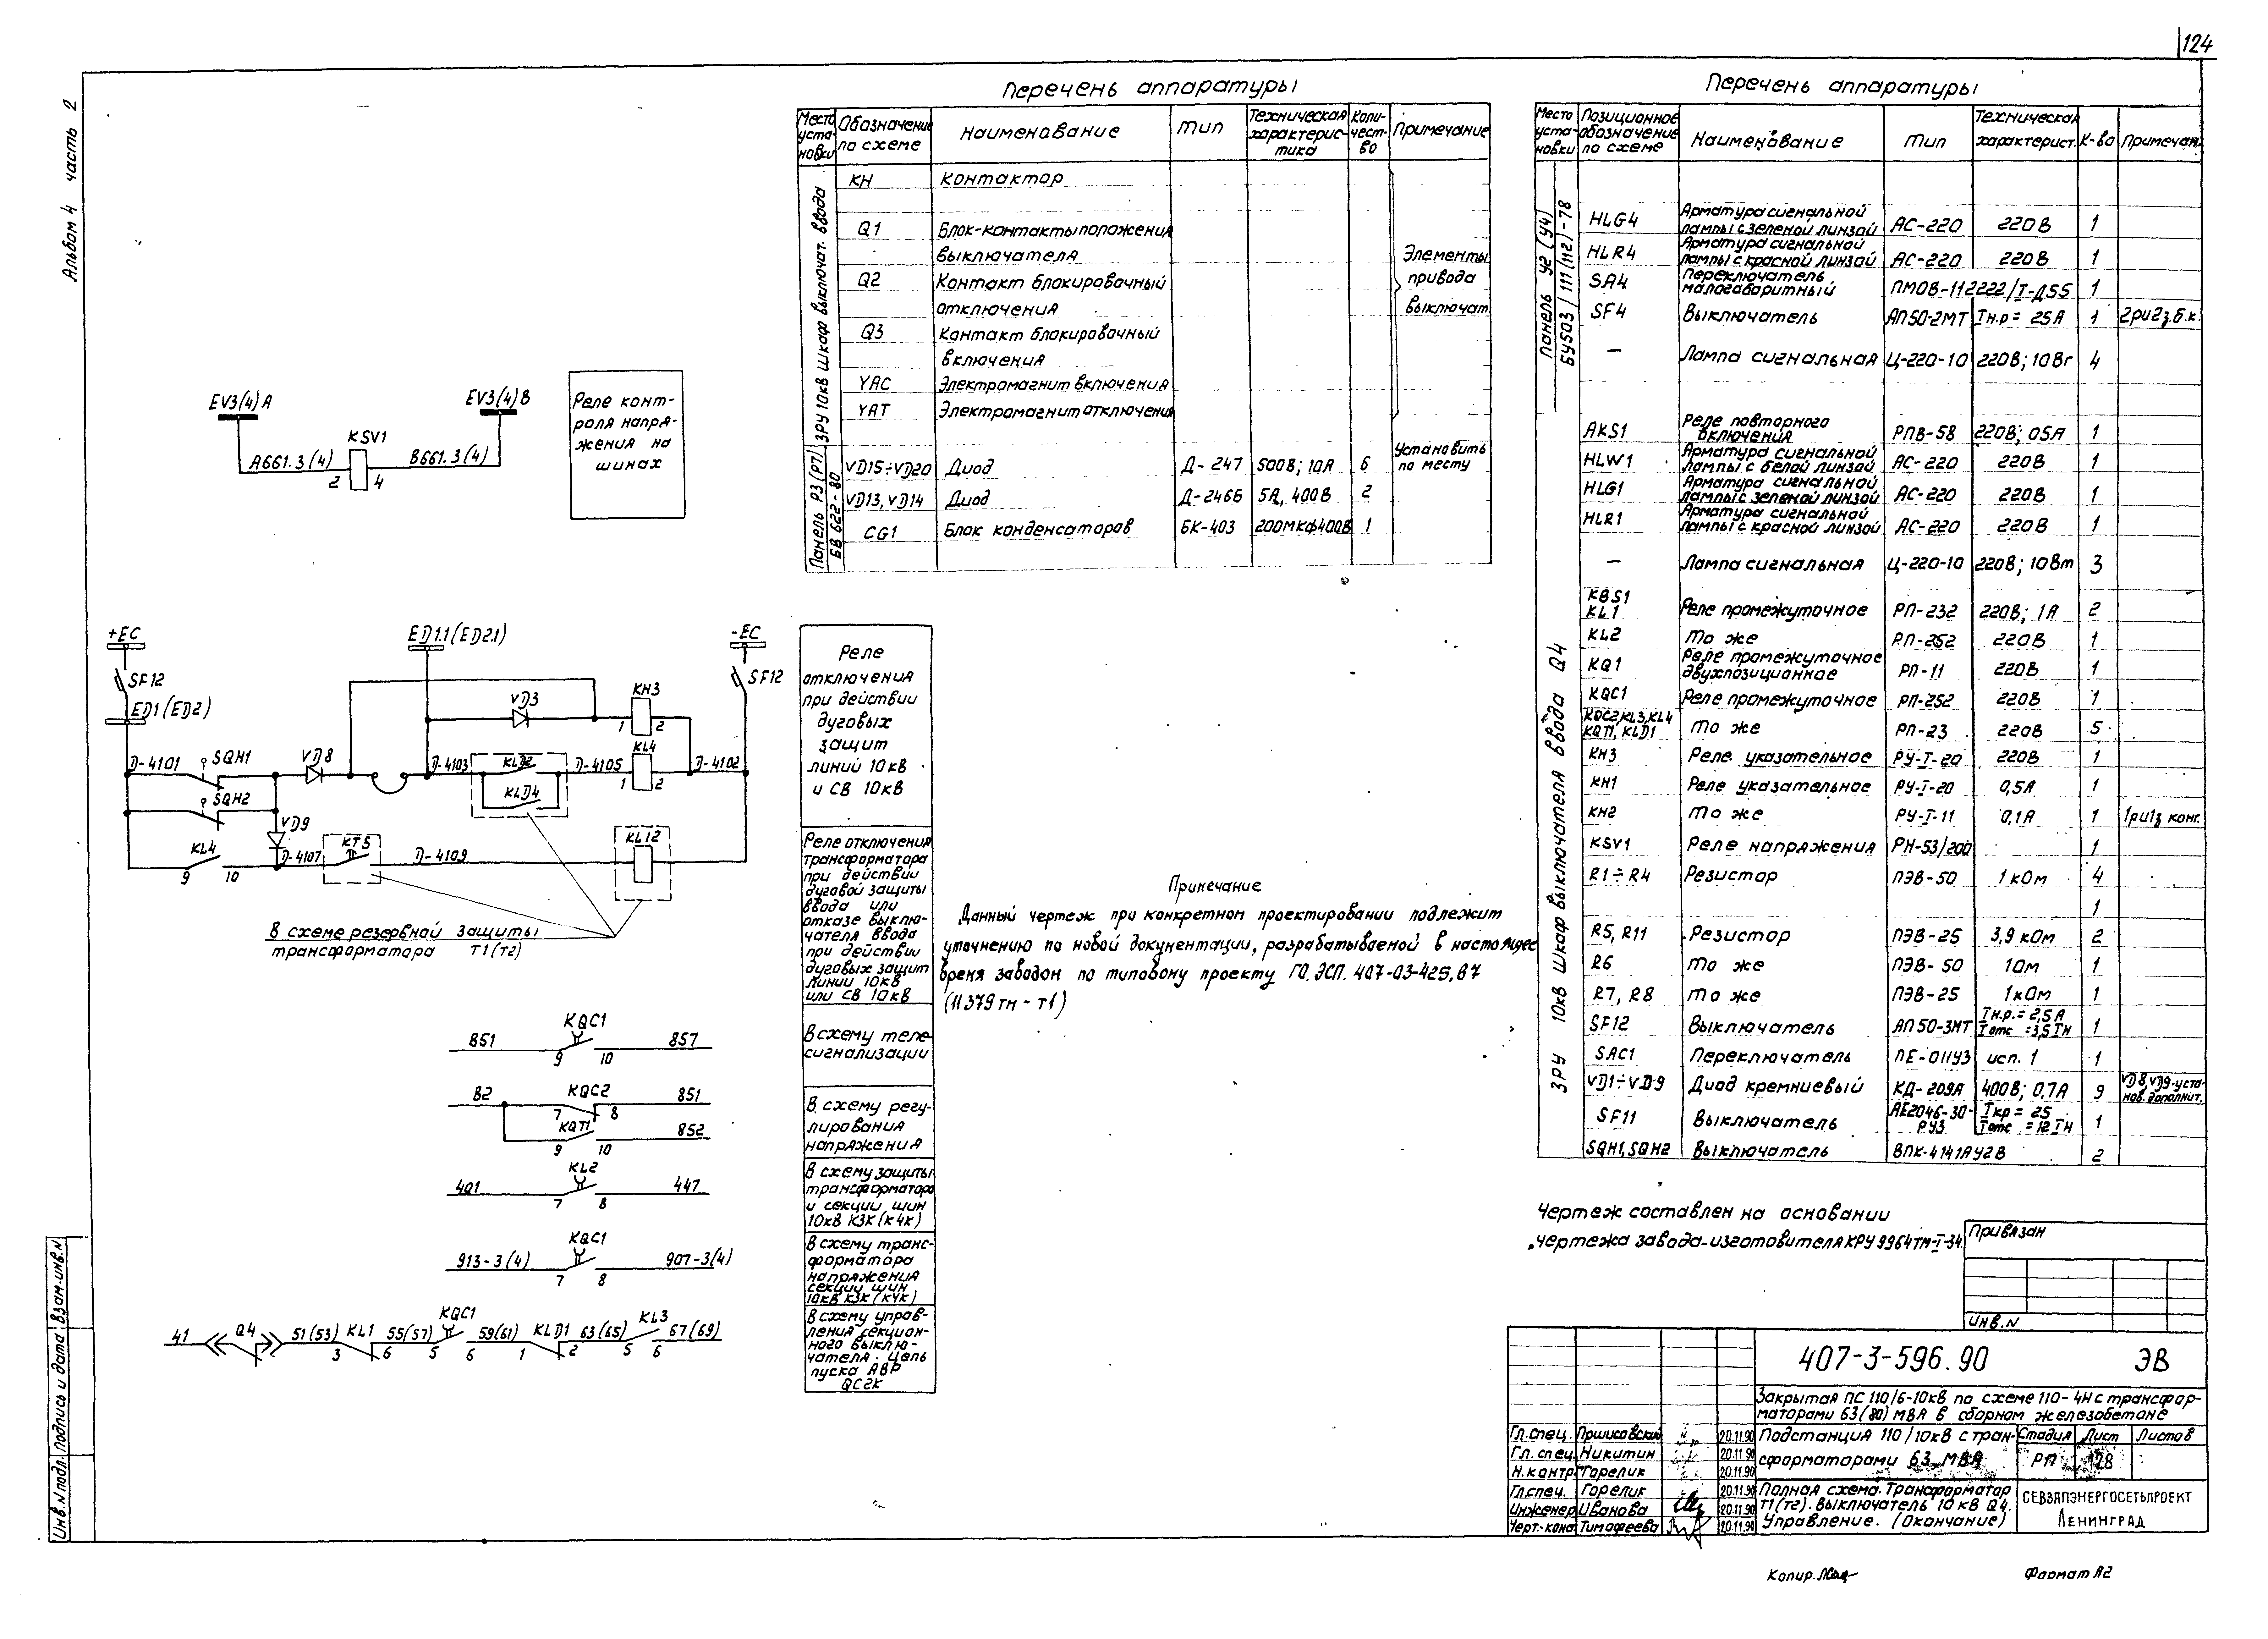 124
Альбом 4 часть 2
Перечень аппаратуры
Место установки
Обозначение по схеме
Наименование
Тип
Техническая характеристика
Количество
Примечание
ЗРУ 10кВ Шкаф выключат. ввода
КН Контактор
Q1 Блок-контакты положения
выключателя
Q2 Контакт блокировочный
отключения
Q3 Контакт блокировочный
включения
YAC Электромагнит включения
YAT Электромагнит отключения
Элементы
привода
выключат.
Панель Р3 (Р7)
БВ 622-80
VD15÷VD20 Диод Д-247 500В; 10А 6 Установить по месту
VD13, VD14 Диод Д-246Б 5А, 400В 2
CG1 Блок конденсаторов БК-403 200мкф400В 1
Перечень аппаратуры
Место установки
Позиционное обозначение по схеме
Наименование
Тип
Техническая характерист.
К-во
Примечан.
Панель У2 (У4)
БУ503 / 111 (112) - 78
HLG4 Арматура сигнальной лампы с зеленой линзой АС-220 220В 1
HLR4 Арматура сигнальной лампы с красной линзой АС-220 220В 1
SA4 Переключатель малогабаритный ПМОВ-112222/I-Д55 1
SF4 Выключатель АП50-2МТ Iн.р = 25А 1 2ри2з.б.к.
— Лампа сигнальная Ц-220-10 220В; 10Вт 4
ЗРУ 10кВ Шкаф выключателя ввода Q4
AKS1 Реле повторного включения РПВ-58 220В; 05А 1
HLW1 Арматура сигнальной лампы с белой линзой АС-220 220В 1
HLG1 Арматура сигнальной лампы с зеленой линзой АС-220 220В 1
HLR1 Арматура сигнальной лампы с красной линзой АС-220 220В 1
— Лампа сигнальная Ц-220-10 220В; 10Вт 3
KBS1
KL1 Реле промежуточное РП-232 220В; 1А 2
KL2 То же РП-252 220В 1
KQ1 Реле промежуточное двухпозиционное РП-11 220В 1
KQC1 Реле промежуточное РП-252 220В 1
KQC2, KL3, KL4
KQT1, KLD1 То же РП-23 220В 5
KH3 Реле указательное РУ-I-20 220В 1
KH1 Реле указательное РУ-I-20 0,5А 1
KH2 То же РУ-I-11 0,1А 1 1ри1з конт.
KSV1 Реле напряжения РН-53/200 1
R1÷R4 Резистор ПЭВ-50 1кОм 4
1
R5, R11 Резистор ПЭВ-25 3,9 кОм 2
R6 То же ПЭВ-50 1Ом 1
R7, R8 То же ПЭВ-25 1кОм 1
SF12 Выключатель АП50-3МТ Iн.р. = 2,5А Iотс = 3,5Iн 1
SAC1 Переключатель ПЕ-011У3 исп. 1 1
VD1÷VD9 Диод кремниевый КД-209А 400В; 0,7А 9 VD8, VD9-установ. дополнит.
SF11 Выключатель АЕ2046-30-РУЗ Iкр = 25 Iотс = 12Iн 1
SQH1, SQH2 Выключатель ВПК-4141АУ2В 2
EV3(4)A
EV3(4)B
KSV1
A661.3(4)
B661.3(4)
2 4
Реле контроля напряжения на шинах
+EC
ED1.1(ED2.1)
-EC
SF12
SF12
ED1(ED2)
VD3
KH3
1 2
D-4101
SQH1
VD8
D-4103
KLD2
D-4105
KL4
1 2
D-4102
SQH2
KLD4
VD9
KL4
9 10
D-4107
KT5
D-4109
KL12
В схеме резервной защиты
трансформатора Т1(т2)
Реле
отключения
при действии
дуговых
защит
линий 10кВ
и СВ 10кВ
Реле отключения
трансформатора
при действии
дуговой защиты
ввода или
отказе выклю-
чателя ввода
при действии
дуговых защит
линии 10кВ
или СВ 10кВ
851 KQC1 857
9 10
В схему теле-
сигнализации
В2 KQC2 851
7 8
KQT1 852
9 10
В схему регу-
лирования
напряжения
401 KL2 447
7 8
В схему защиты
трансформатора
и секции шин
10кВ К3К (К4К)
913-3(4) KQC1 907-3(4)
7 8
В схему транс-
форматора
напряжения
секции шин
10кВ К3К (К4К)
41 Q4 51(53) KL1 55(57) KQC1 59(61) KLD1 63(65) KL3 67(69)
3 6 5 6 1 2 5 6
В схему управ-
ления секцион-
ного выклю-
чателя. Цепь
пуска АВР
QC2K
Примечание
Данный чертеж при конкретном проектировании подлежит
уточнению по новой документации, разрабатываемой в настоящее
время заводом по типовому проекту ГО. ЭСП. 407-03-425,87
(11379тм-т1)
Чертеж составлен на основании
чертежа завода-изготовителя КРУ 9964тм-I-34.
Привязан
Инв.N
407-3-596.90 ЭВ
Закрытая ПС 110/6-10кВ по схеме 110-4Н с трансфор-
маторами 63(80) МВА в сборном железобетоне
Гл.спец. Пришсовский 20.11.90
Гл. спец. Никитин 20.11.90
Н.контр Горелик 20.11.90
Гл.спец. Горелик 20.11.90
Инженер Иванова 20.11.90
Черт.-кона Тимофеева 20.11.90
Подстанция 110/10кВ с тран-
сформаторами 63 МВА
Стадия Лист Листов
РП 128
Полная схема. Трансформатор
Т1(т2). Выключатель 10кВ Q4.
Управление. (Окончание)
СЕВЗАПЭНЕРГОСЕТЬПРОЕКТ
ЛЕНИНГРАД
Инв.N подл. Подпись и дата Взам.инв.N
Копир.
Формат А2